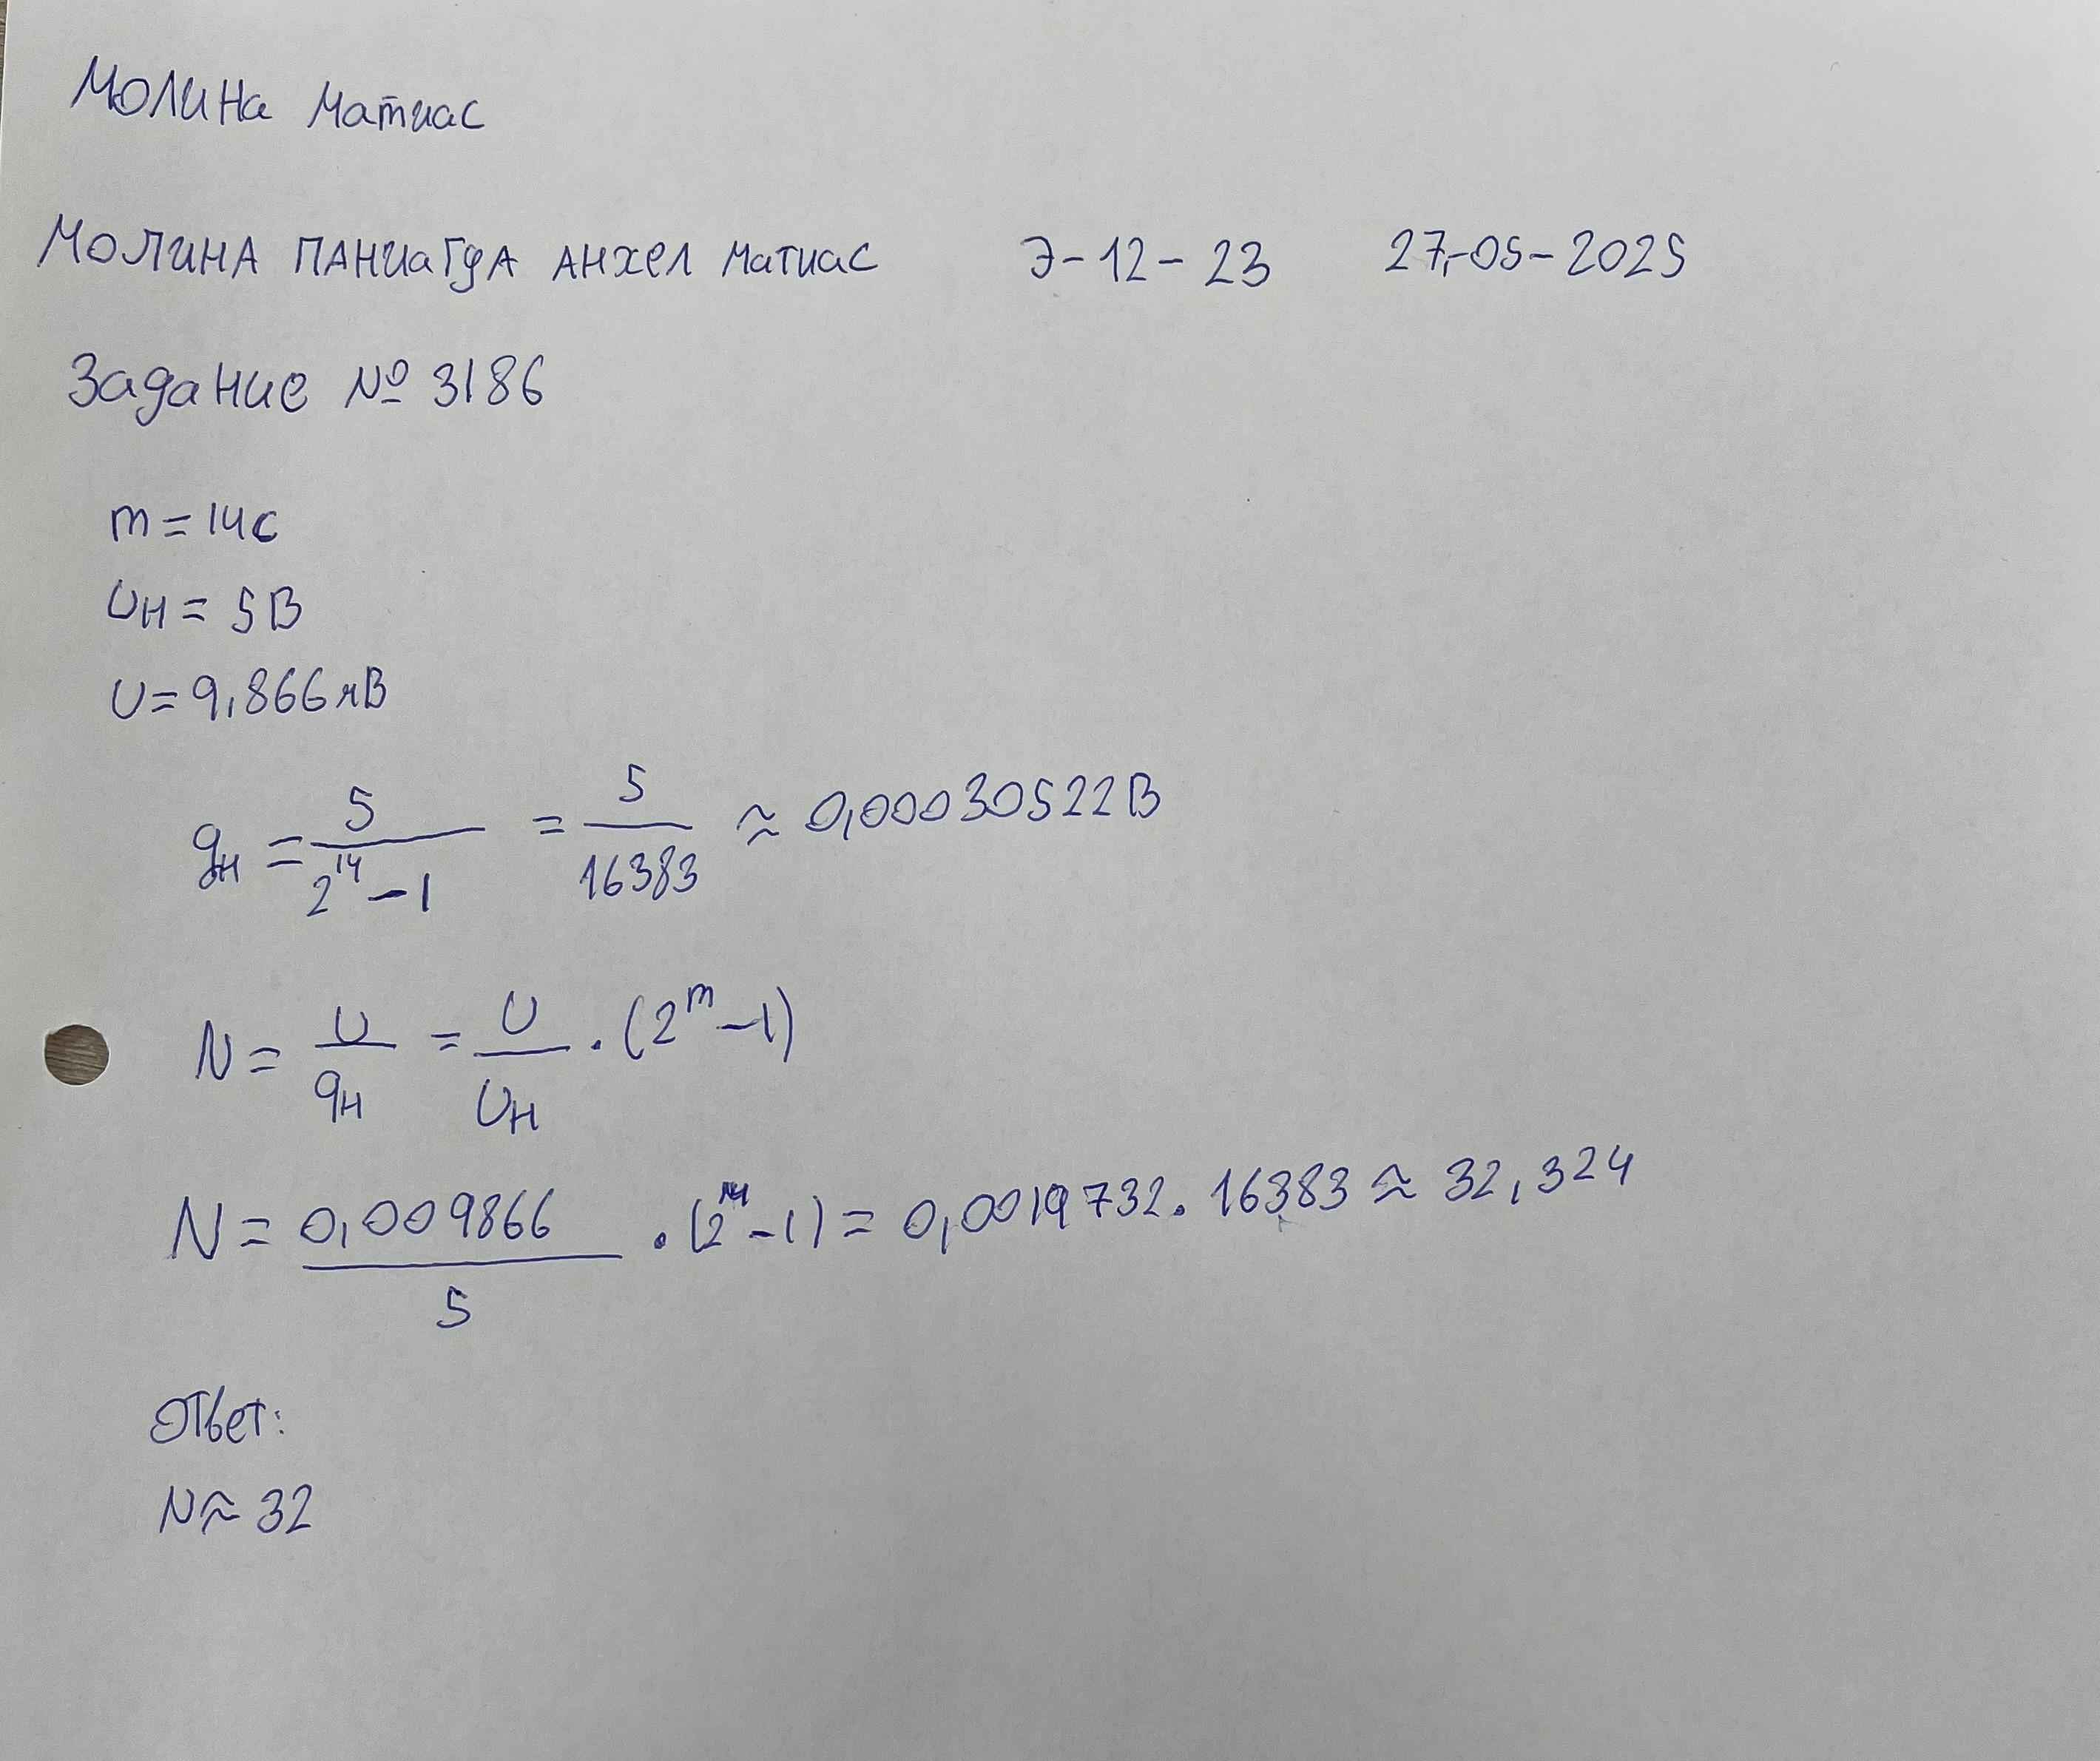 Молина Матиас
МОЛИНА ПАНИАГУА АНХЕЛ Матиас Э-12-23 27-05-2025
Задание № 3186
m = 14c
Uн = 5В
U = 9,866мВ
qн = 5/(2^14 - 1) = 5/16383 ≈ 0,00030522В
N = U/qн = U/Uн · (2^m - 1)
N = 0,009866/5 · (2^14 - 1) = 0,0019732 · 16383 ≈ 32,324
Ответ:
N ≈ 32